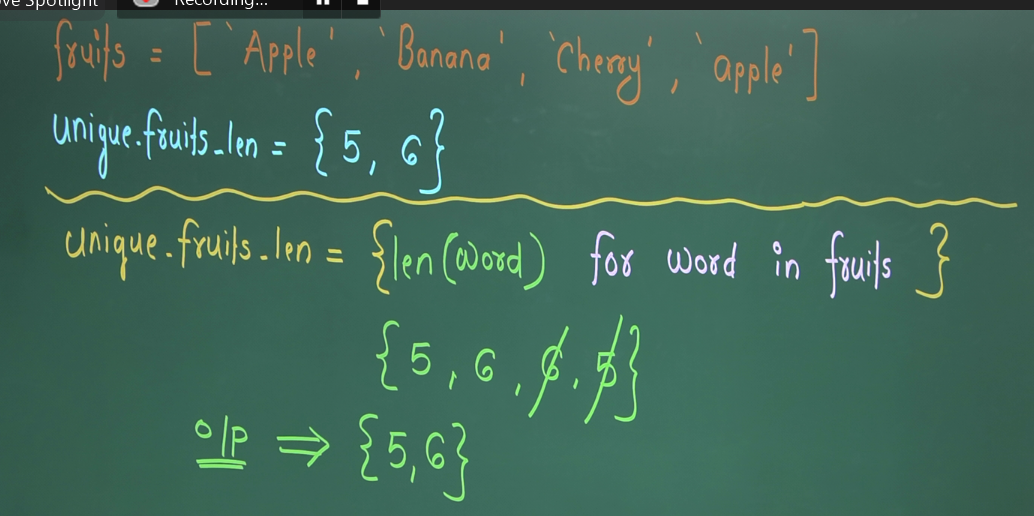 ve Spotlight Recording...
fruits = [ 'Apple', 'Banana', 'Cherry', 'apple' ]
unique_fruits_len = { 5, 6 }
unique_fruits_len = { len(word) for word in fruits }
{ 5, 6, 6, 5 }
o/p ⇒ { 5, 6 }